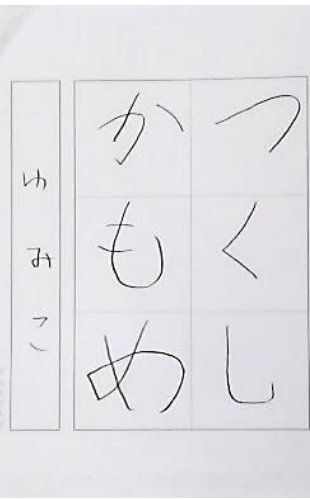 つくし
かもめ
ゆみこ